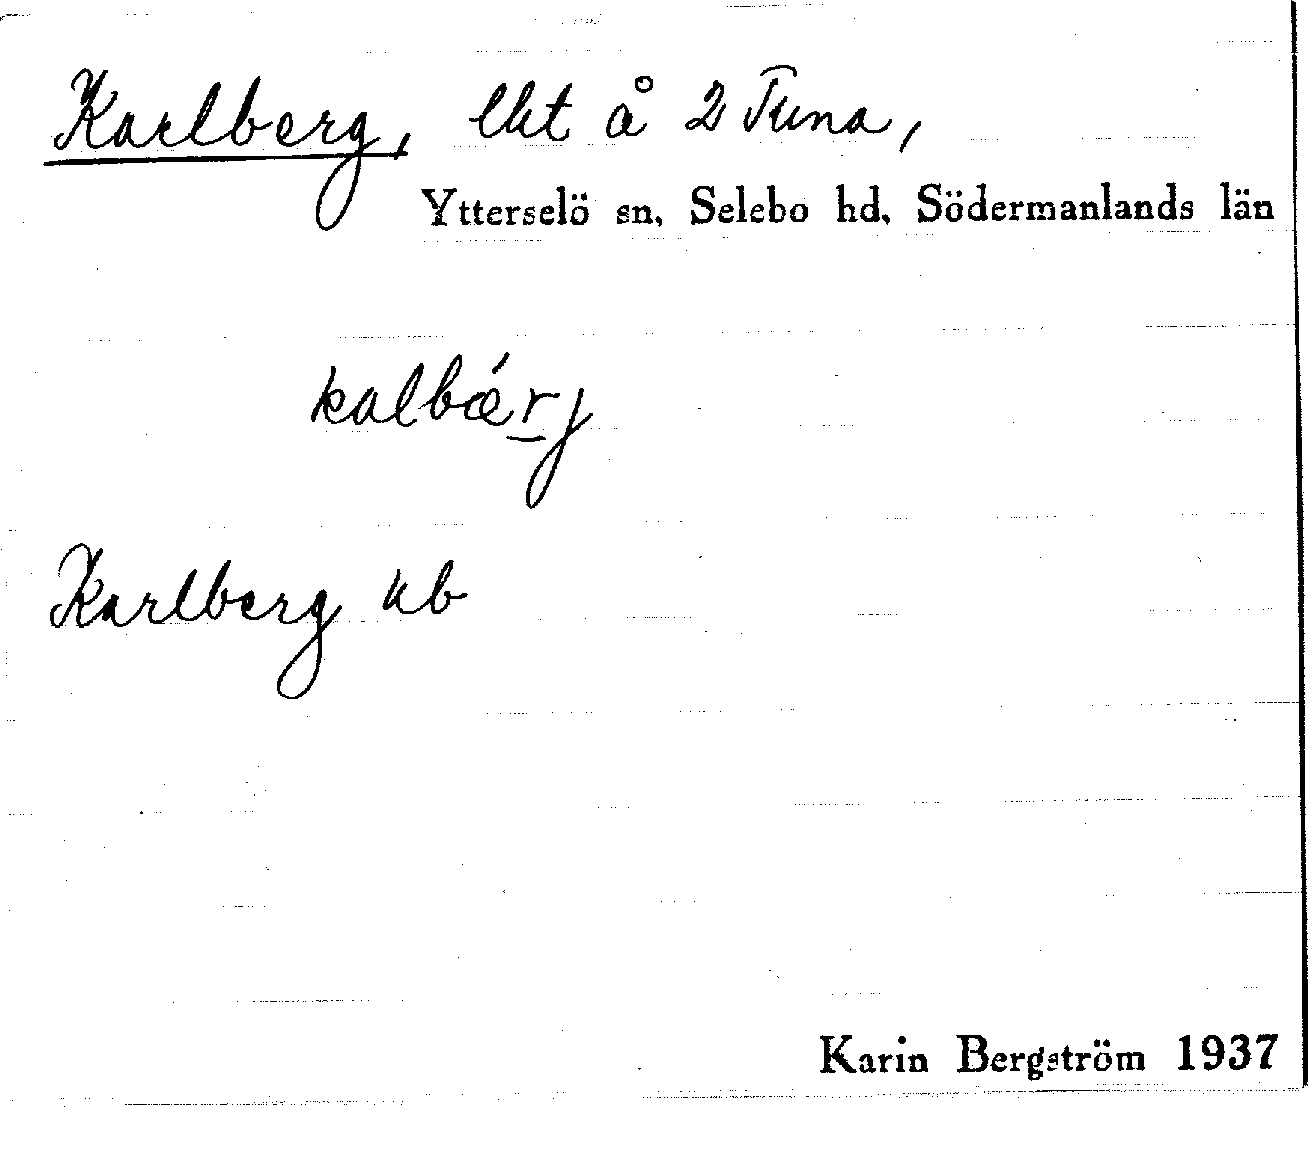 Karlberg, lht å 2 Tuna,
Ytterselö sn, Selebo hd, Södermanlands län
kalbǽr̲j
Karlberg kb
Karin Bergström 1937